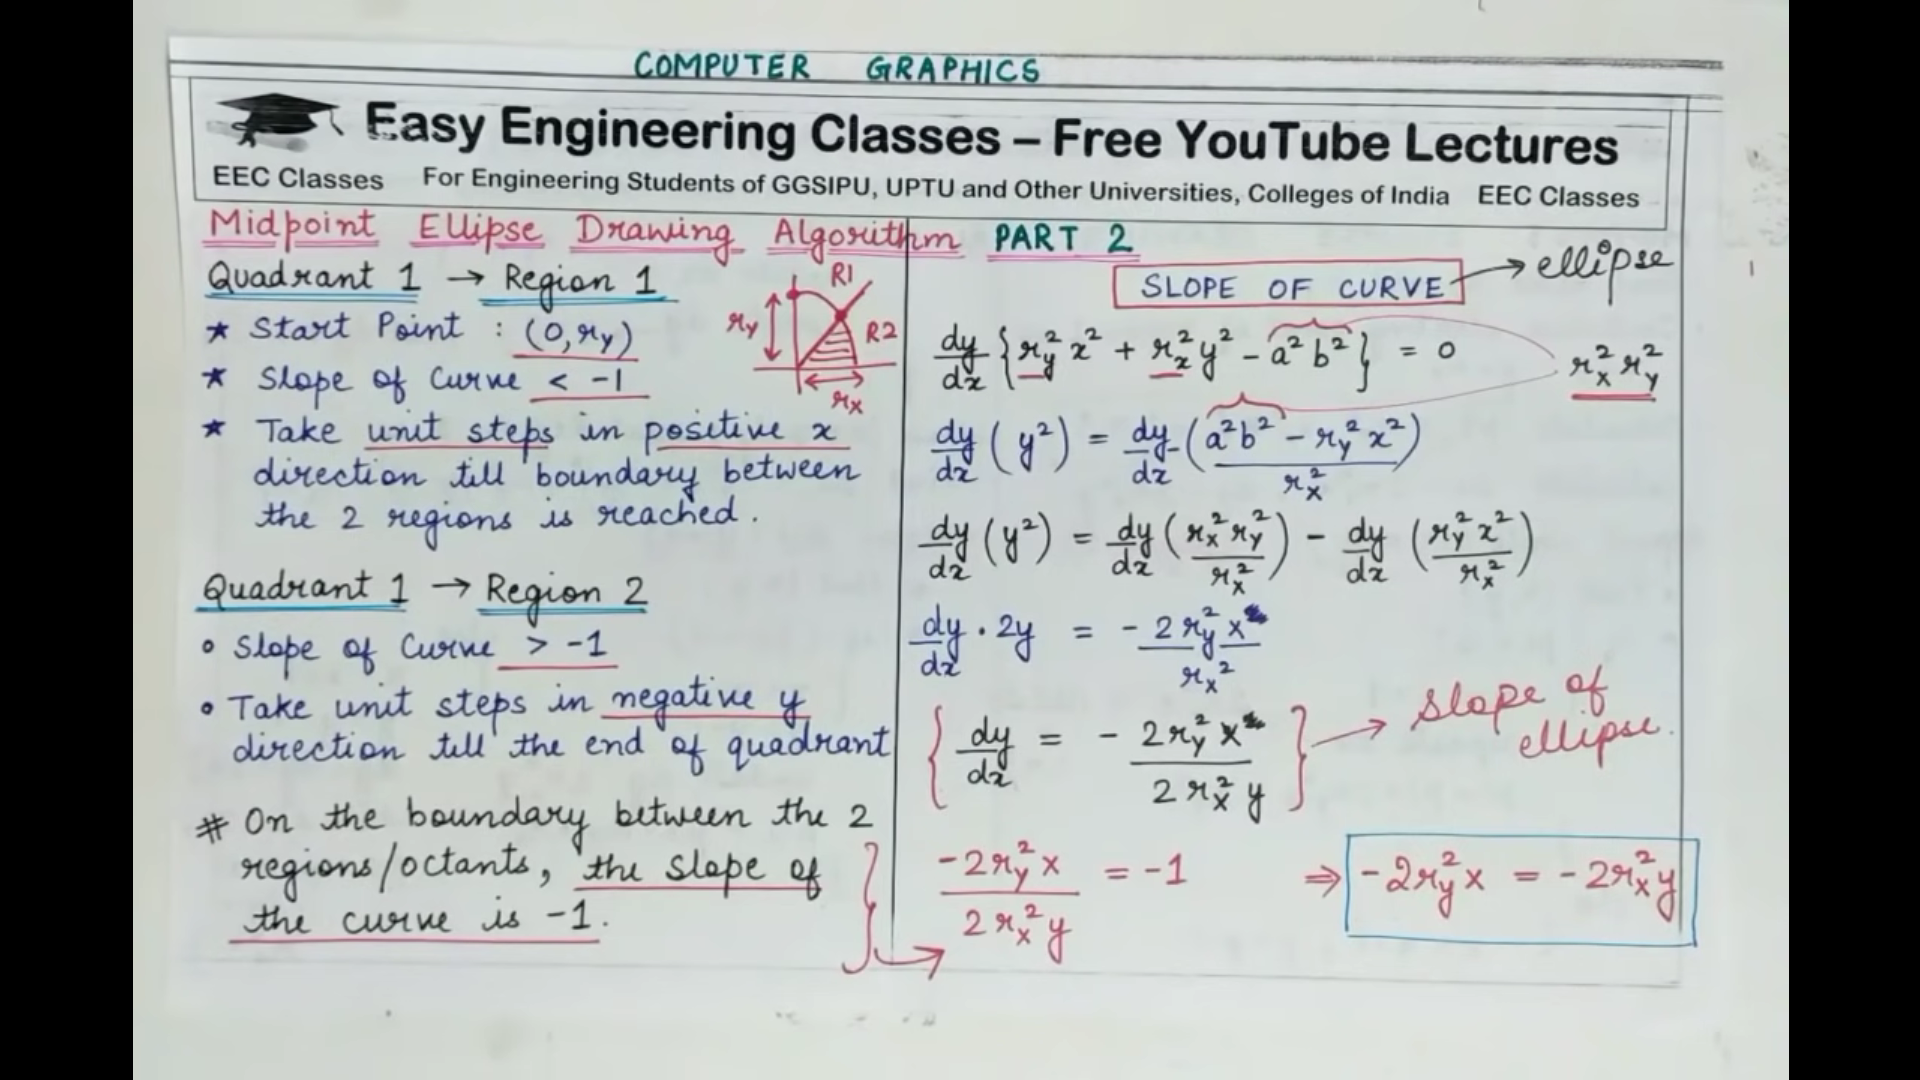 COMPUTER GRAPHICS
Easy Engineering Classes – Free YouTube Lectures
EEC Classes For Engineering Students of GGSIPU, UPTU and Other Universities, Colleges of India EEC Classes
Midpoint Ellipse Drawing Algorithm PART 2
Quadrant 1 → Region 1
* Start Point : (0, ry)
* Slope of Curve < -1
* Take unit steps in positive x
direction till boundary between
the 2 regions is reached.
R1
ry
R2
rx
Quadrant 1 → Region 2
• Slope of Curve > -1
• Take unit steps in negative y
direction till the end of quadrant
# On the boundary between the 2
regions/octants, the slope of
the curve is -1.
SLOPE OF CURVE → ellipse
dy/dx {ry² x² + rx² y² - a² b²} = 0
rx² ry²
dy/dx (y²) = dy/dx (a²b² - ry² x²)/rx²
dy/dx (y²) = dy/dx (rx² ry²/rx²) - dy/dx (ry² x²/rx²)
dy/dx . 2y = - 2 ry² x/rx²
{dy/dx = - 2ry² x/2rx² y} → slope of
ellipse.
-2ry² x/2rx² y = -1 ⇒ -2ry² x = -2rx² y